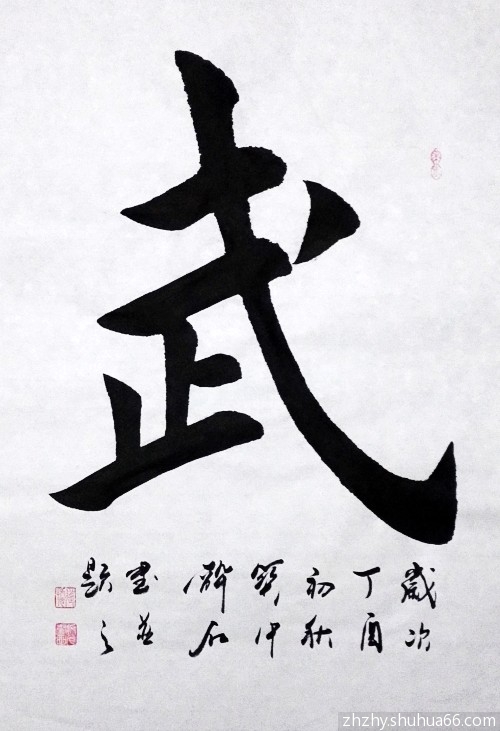 武
歲次
丁酉
初秋
石
書並
題之
zhzhy.shuhua66.com